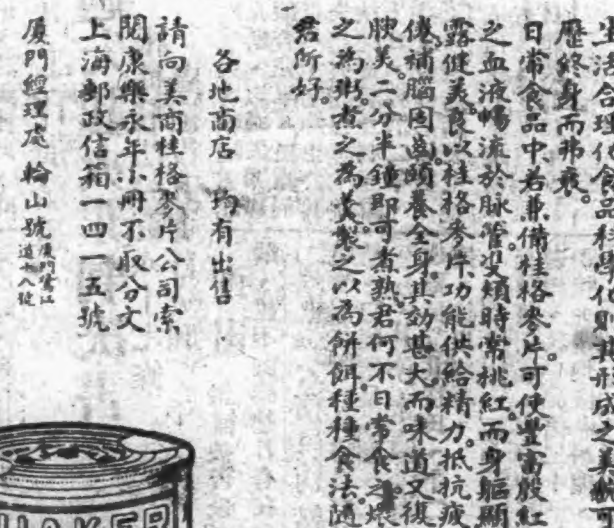 生活合理化食品科學化則其形成之美貌可
歷終身而弗衰。
日常食品中若兼備桂格麥片。可使豐富殷紅
之血液暢流於脉管雙頰時常桃紅。而身軀顯
露健美。良以桂格麥片功能供給精力。抵抗疲
倦。補腦固齒。頤養全身。其効甚大。而味道又復
腴美。二分半鐘即可煮熟。君何不日常食之。煨
之為粥。煮之為羹。製之以為餅餌。種種食法。隨
君所好。
各地商店 均有出售
請向美商桂格麥片公司索
閱康樂永年小冊不取分文
上海郵政信箱一四一五號
廈門經理處 輪山號 廈門鷺江
道十八號
QUAKER